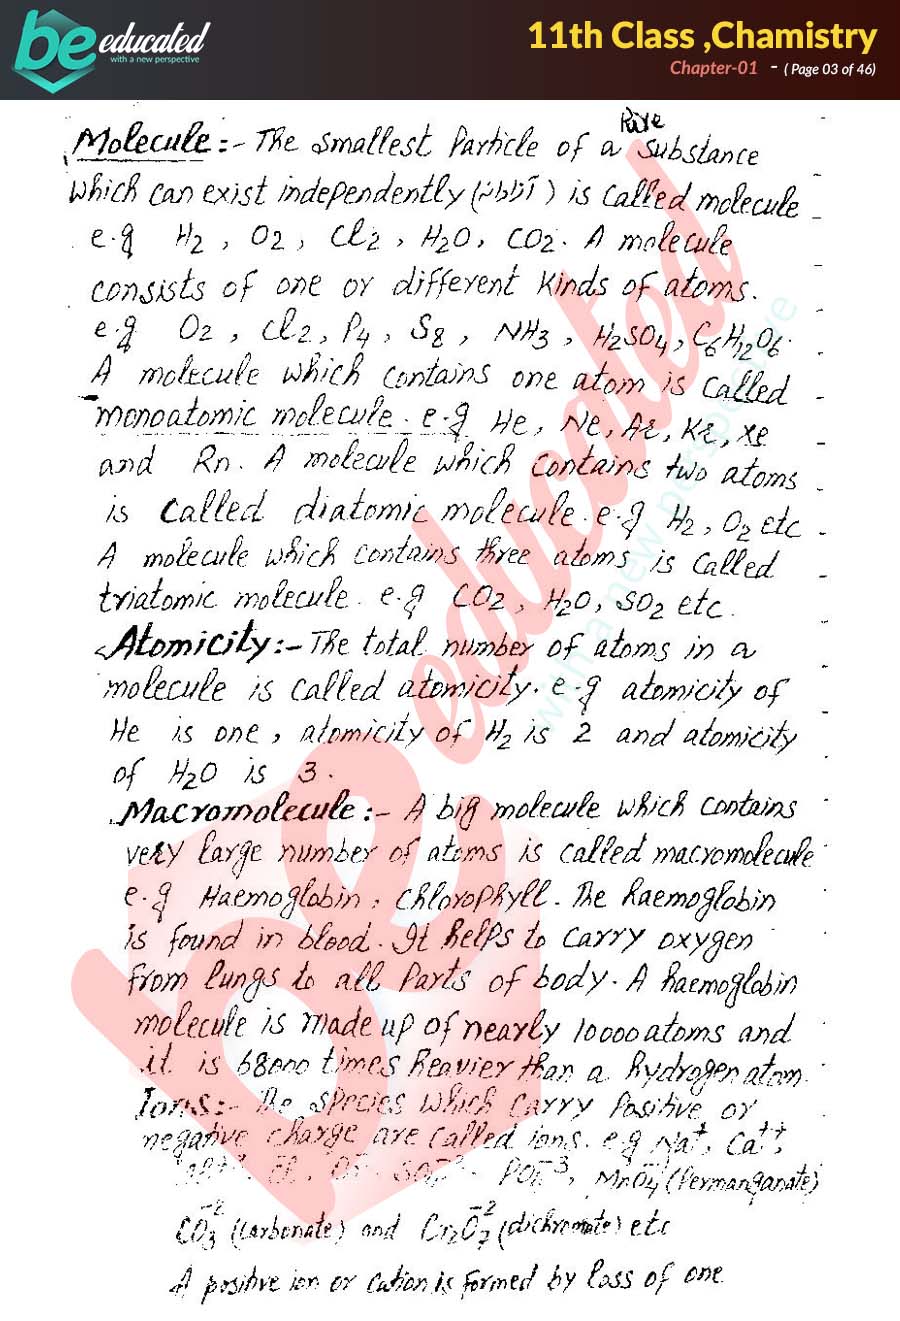 be educated
with a new perspective
11th Class ,Chamistry
Chapter-01 - ( Page 03 of 46)
Pure
Molecule:- The smallest Particle of a substance
which can exist independently ( ) is called molecule
e.g H2, O2, Cl2, H2O, CO2. A molecule
consists of one or different kinds of atoms.
e.g O2, Cl2, P4, S8, NH3, H2SO4, C6H12O6.
A molecule which contains one atom is called
monoatomic molecule. e.g He, Ne, Ar, Kr, Xe
and Rn. A molecule which contains two atoms
is called diatomic molecule. e.g H2, O2 etc
A molecule which contains three atoms is called
triatomic molecule. e.g CO2, H2O, SO2 etc.
Atomicity:- The total number of atoms in a
molecule is called atomicity. e.g atomicity of
He is one, atomicity of H2 is 2 and atomicity
of H2O is 3.
Macromolecule:- A big molecule which contains
very large number of atoms is called macromolecule
e.g Haemoglobin, chlorophyll. The haemoglobin
is found in blood. It helps to carry oxygen
from lungs to all parts of body. A haemoglobin
molecule is made up of nearly 10000 atoms and
it is 68000 times heavier than a hydrogen atom.
Ions:- The species which carry Positive or
negative charge are called ions. e.g Na+, Ca++,
PO4-3, MnO4- (Permanganate)
CO3-2 (carbonate) and Cr2O7-2 (dichromate) etc
A positive ion or cation is formed by loss of one
be educated
with a new perspective